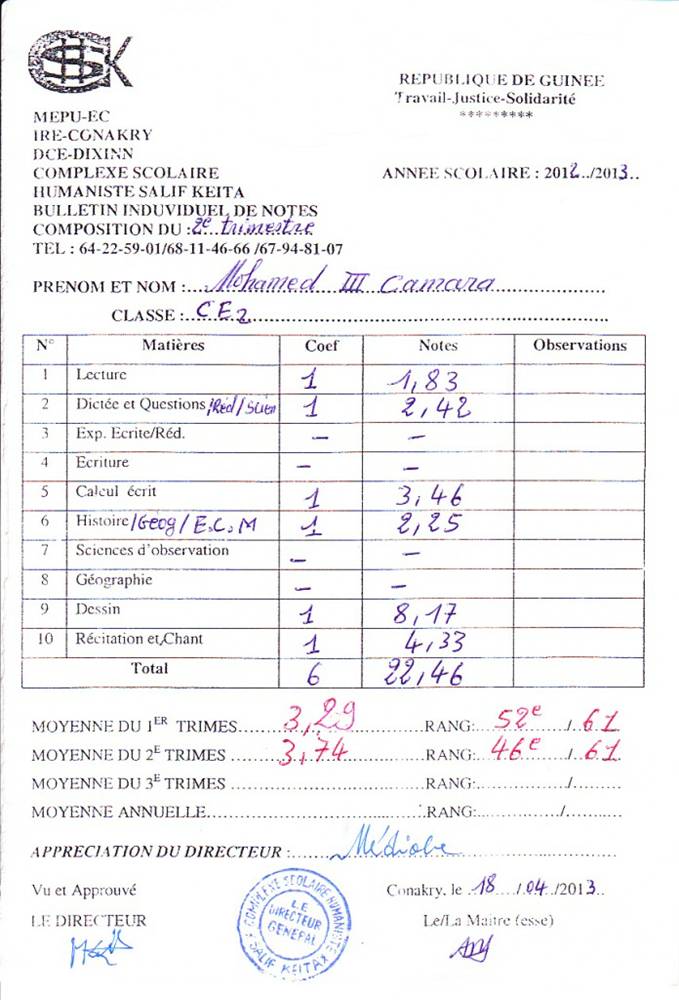 GSHSK
REPUBLIQUE DE GUINEE
Travail-Justice-Solidarité
*********
MEPU-EC
IRE-CONAKRY
DCE-DIXINN
COMPLEXE SCOLAIRE
HUMANISTE SALIF KEITA
ANNEE SCOLAIRE : 2012../2013..
BULLETIN INDUVIDUEL DE NOTES
COMPOSITION DU :2e trimestre
TEL : 64-22-59-01/68-11-46-66 /67-94-81-07
PRENOM ET NOM :...Mohamed III Camara...
CLASSE :..CE2...
N° Matières Coef Notes Observations
1 Lecture 1 1,83
2 Dictée et Questions/Réd/Scien 1 2,42
3 Exp. Ecrite/Réd. – –
4 Ecriture – –
5 Calcul écrit 1 3,46
6 Histoire/Géog/E.C.M 1 2,25
7 Sciences d'observation – –
8 Géographie – –
9 Dessin 1 8,17
10 Récitation et Chant 1 4,33
Total 6 22,46
MOYENNE DU 1ER TRIMES...3,29...RANG:...52e.../.61
MOYENNE DU 2E TRIMES...3,74...RANG:...46e.../.61
MOYENNE DU 3E TRIMES...RANG:.../...
MOYENNE ANNUELLE...RANG:.../...
APPRECIATION DU DIRECTEUR :...Médiobe...
Vu et Approuvé
Conakry, le .18.../.04./2013..
LE DIRECTEUR
Le/La Maitre (esse)
COMPLEXE SCOLAIRE HUMANISTE
LE
DIRECTEUR
GENERAL
SALIF KEITA